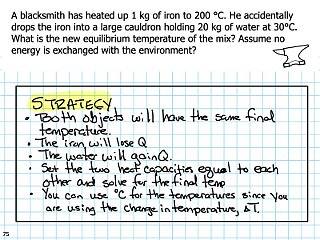 A blacksmith has heated up 1 kg of iron to 200 °C. He accidentally
drops the iron into a large cauldron holding 20 kg of water at 30°C.
What is the new equilibrium temperature of the mix? Assume no
energy is exchanged with the environment?
STRATEGY
• Both objects will have the same final
temperature.
• The iran will lose Q
• The water will gain Q.
• Set the two heat capacities equal to each
other and solve for the final temp
• You can use °C for the temperatures since you
are using the change in temperature, ΔT.
75